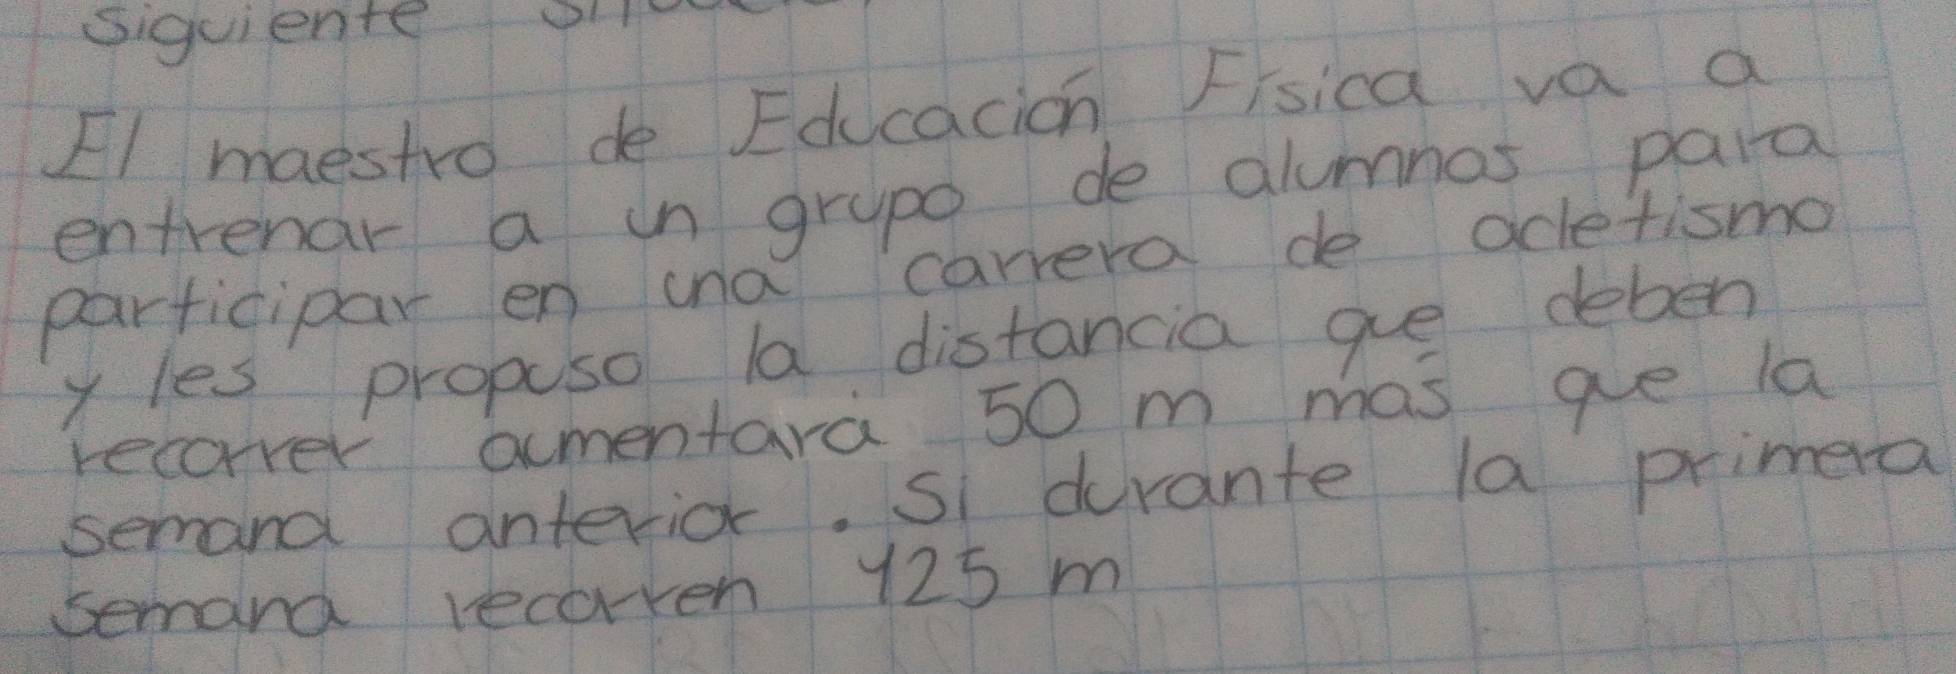 siguiente
El maestro de Educación Física va a
entrenar a un grupo de alumnos para
participar en una carrera de acletismo
y les propuso la distancia que deben
recorrer aumentará 50 m más que la
semana anterior. Si durante la primera
semana recorren 125 m